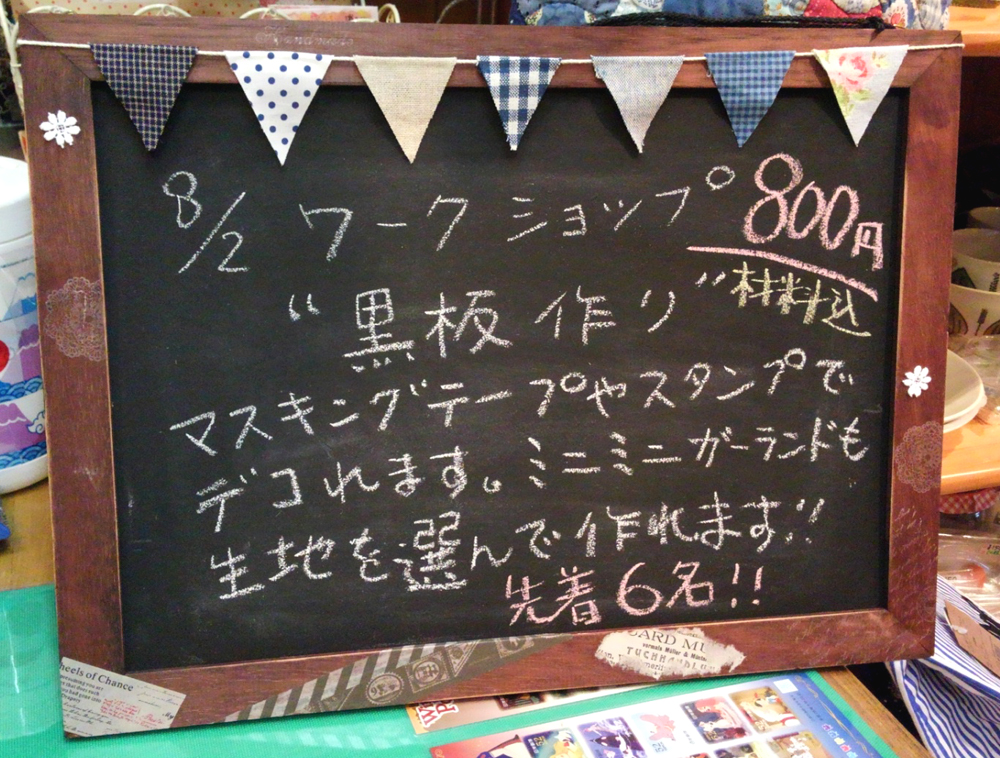 Handmade
8/2 ワークショップ 800円
材料込
"黒板作り"
マスキングテープやスタンプで
デコれます。ミニミニガーランドも
生地を選んで作れます!!
先着6名!!
heels of Chance
CARD MU
vormals Müller &
TUCHHANDLU